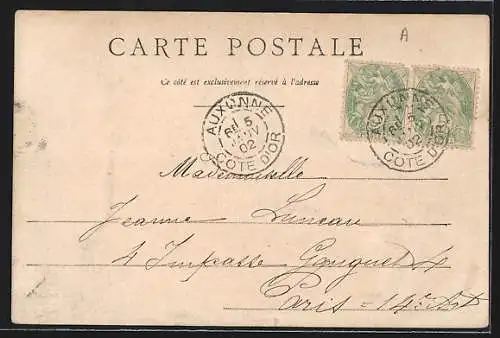 A
CARTE POSTALE
Ce côté est exclusivement réservé à l'adresse
AUXONNE
5
JANV
02
COTE D'OR
AUXONNE
02
COTE D'OR
Mademoiselle
Jeanne Luneau
4 Impasse Gauguet 4
Paris = 14e Art